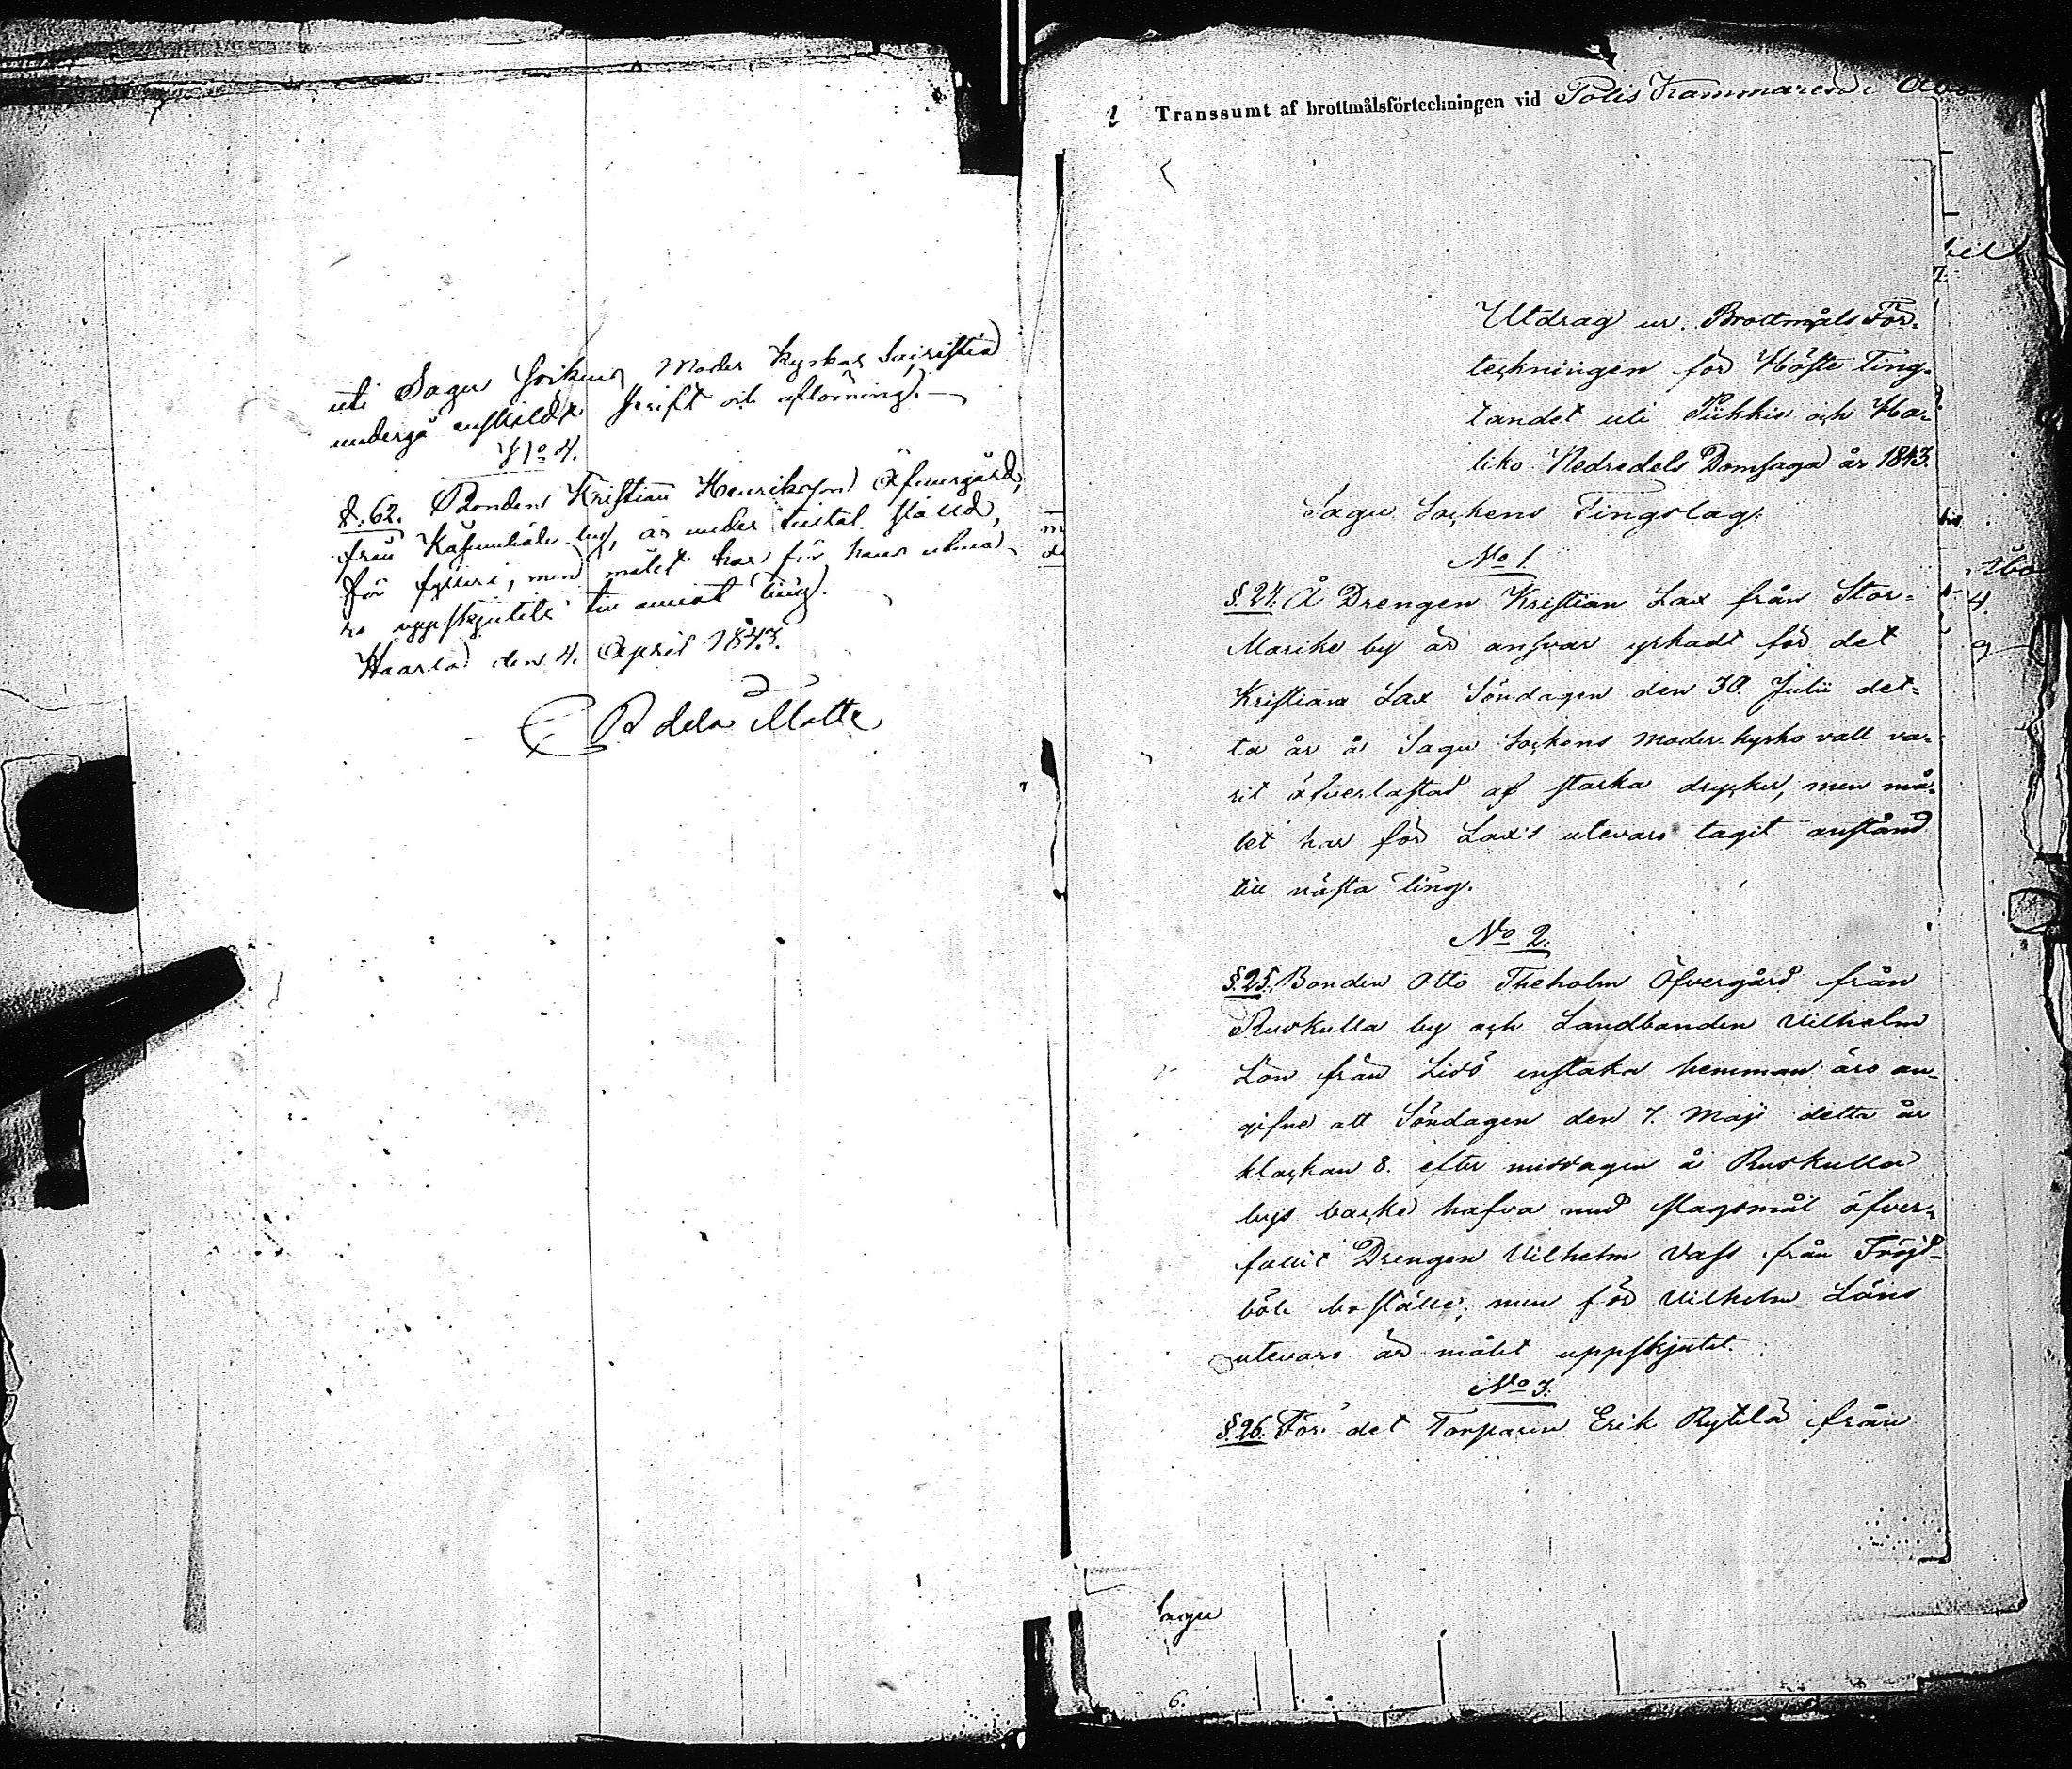 uti Sagu Sockens Moder Kyrkas Sacristia
undergå enskildt skrift och aflösning.
No 4.
§. 62. Bonden Kristian Henriksson Öfvergård,
från by, är under tilltal ställd,
för fylleri, men målet har för hans uteva-
ro uppskjutits till annat ting.
Haarla den 4. April 1843.
de la Motte
Transsumt af brottmålsförteckningen vid Polis Kammaren i Åbo
Utdrag ur Brottmåls För-
teckningen för Höste Ting-
tandet uti Pikkis och Ha-
liko Nedredels Domsaga år 1843.
Sagu Sockens Tingslag.
No 1.
§ 24. Å Drengen Kristian Lax från Stor-
Marike by är ansvar yrkadt för det
Kristian Lax Söndagen den 30. Julii det-
ta år å Sagu Sockens moder kyrko vall va-
rit öfverlastad af starka drycker, men må-
let har för Lax's utevaro tagit anstånd
till nästa ting.
No 2.
§. 25. Bonden Otto Theholm Öfvergård från
Ruskulla by och Landbonden Vilhelm
Lön från Lidö enstaka hemman äro an-
gifne att Söndagen den 7. Maji detta år
klockan 8. efter middagen å Ruskulla
bys backe hafva med slagsmål öfver-
fallit Drengen Vilhelm Vass från Fröjd-
böle boställe, men för Vilhelm Löns
utevaro är målet uppskjutet.
No 3.
§. 26. För det Torparen Erik Rytilä från
Sagu
6.